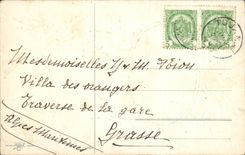 Mesdemoiselles Y & M.
Villa des orangers
Traverse de la gare
Grasse
Alpes Maritimes